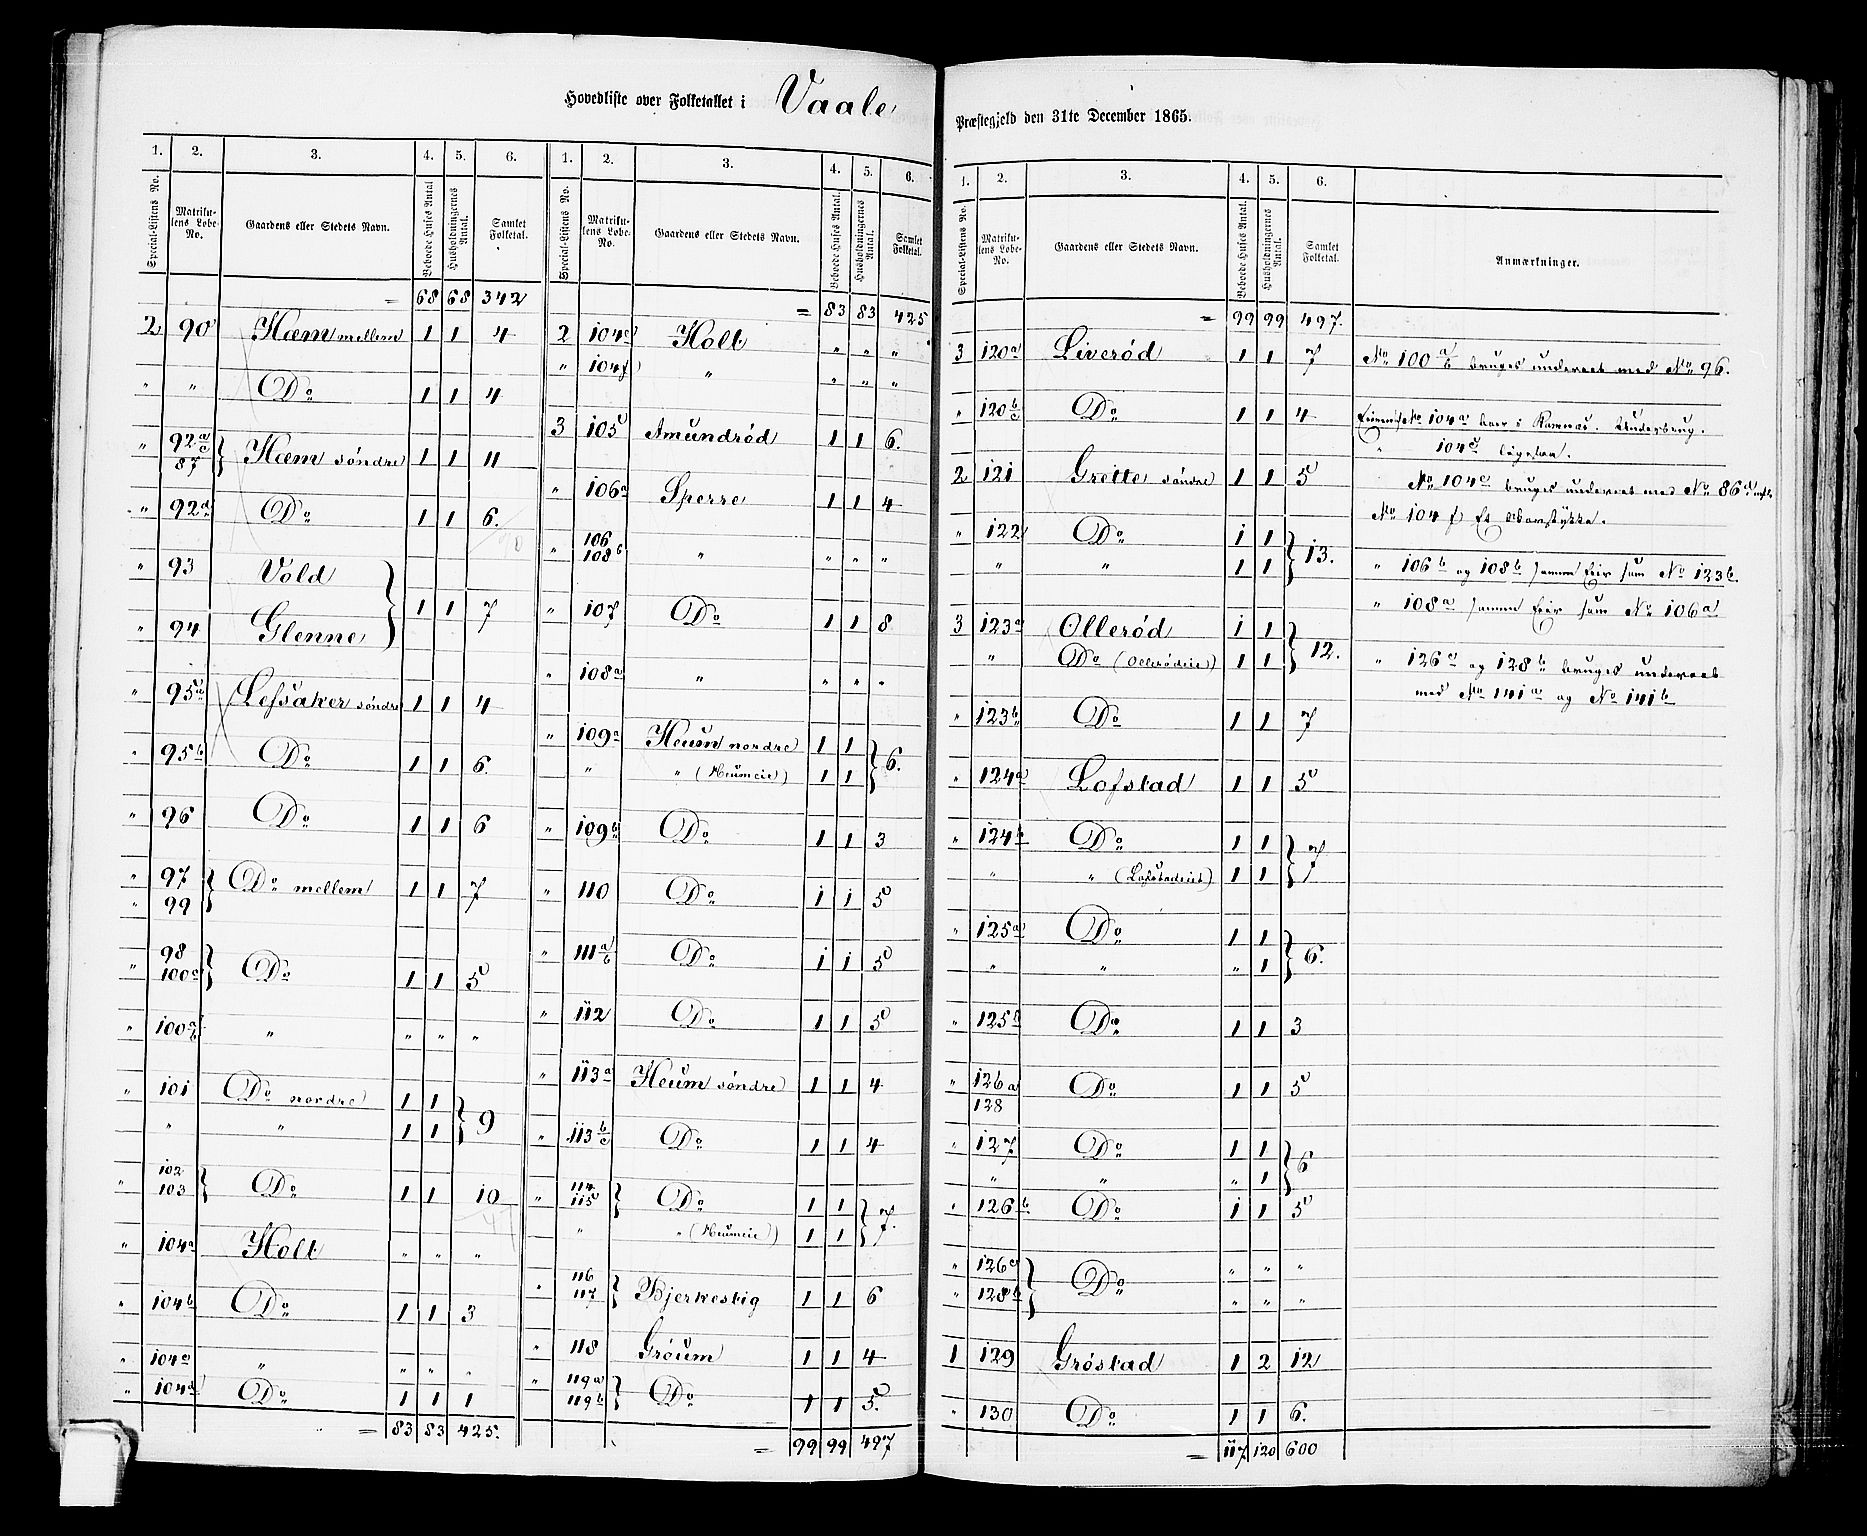 Hovedliste over Folketallet i Vaale
Præstegjeld den 31te December 1865.
1. 2. 3. 4. 5. 6.
Special-Listens No. Matrikulens Løbe-No. Gaardens eller Stedets Navn. Beboede Huses Antal Husholdningernes Antal. Samlet Folketal.
= 68 68 342
2 90 Hæm mellem 1 1 4
" " Do 1 1 4
" 92 a/c 87 } Hæm søndre 1 1 11
" 92d Do 1 1 6.
" 93 Vold
" 94 Glenne } 1 1 7
" 95a Lefsaker søndre 1 1 4
" 95b Do 1 1 6.
" 96 Do 1 1 6
" 97
" 99 } Do mellem 1 1 7
" 98 100a } Do 1 1 5
" 100 a/b " " " "
" 101 Do nordre 1 1
" " 1 1 } 9
" 102 103 } Do 1 1 10
" 104a Holt " " "
" 104b Do 1 1 3
" 104c " " " "
" 104d Do 1 1 1
= 83 83 425.
1. 2. 3. 4. 5. 6.
Special-Listens No. Matrikulens Løbe-No. Gaardens eller Stedets Navn. Beboede Huses Antal. Husholdningernes Antal. Samlet Folketal.
= 83 83 425
2 104e Holt " " "
" 104f " " " "
3 105 Amundrød 1 1 6.
" 106a Sperre 1 1 4
" 106 108b " " " "
" 107 Do 1 1 8
" 108a " " " "
" 109a Heum nordre 1 1
" " (Heumeie) 1 1 } 6.
" 109b Do 1 1 3
" 110 Do 1 1 5
" 111 a/b Do 1 1 5
" 112 Do 1 1 5
" 113a Heum søndre 1 1 4
" 113 b/c Do 1 1 4
" 114 115 } Do 1 1
" " (Heumeie) 1 1 } 7.
" 116 117 } Bjerkestig 1 1 6
" 118 Grøum 1 1 4
" 119a 119b } Do 1 1 5.
= 99 99 497
1. 2. 3. 4. 5. 6.
Special-Listens No. Matrikulens Løbe-No. Gaardens eller Stedets Navn. Beboede Huses Antal. Husholdningernes Antal. Samlet Folketal. Anmærkninger.
= 99 99 497.
3 120a Liverød 1 1 7
" 120 b/c Do 1 1 4
2 121 Grette søndre 1 1 5
" 122 Do 1 1
" " 1 1 } 13.
3 123a Ollerød 1 1
" Do (Ollerødeie) 1 1 } 12.
" 123b Do 1 1 7
" 124a Lofstad 1 1 5
" 124b Do 1 1
" " (Lofstadeiet) 1 1 } 7
" 125a Do 1 1
" " " 1 } 6.
" 125b Do 1 1 3
" 126a 128 Do 1 1 5
" 127 Do 1 1
" " " 1 } 6
" 126b Do 1 1 5
" 126c " " "
" 128b } Do " " "
1 129 Grøstad 1 2 12
" 130 Do 1 1 6.
= 117 120 600
No 100 a/b bruges underet med No 96.
No 104a boer i Ramnæs. Underbrug.
" 104c ligesaa.
No 104e bruges underet med No 86a
No 104f Et
" 106b og 108b samme Eier som No 123b.
" 108a samme Eier som No 106a
" 126c og 128b bruges underet
med No 141a og No 141b